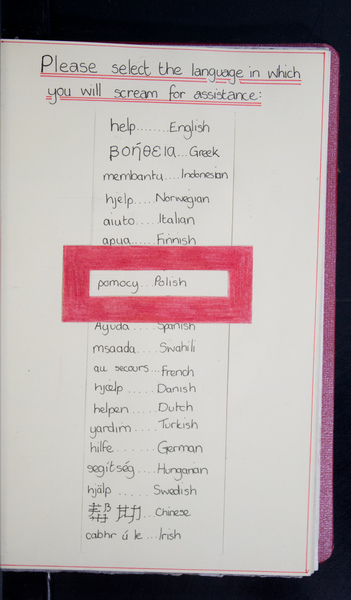 Please select the language in which
you will scream for assistance:
help.......English
βοήθεια...Greek
membantu....Indonesian
hjelp....Norwegian
aiuto.....Italian
apua......Finnish
pomocy...Polish
Ayuda.....Spanish
msaada.....Swahili
au secours...French
hjælp.....Danish
helpen.....Dutch
yardim.....Turkish
hilfe......German
segítség....Hungarian
hjälp......Swedish
...Chinese
cabhr ú le...Irish